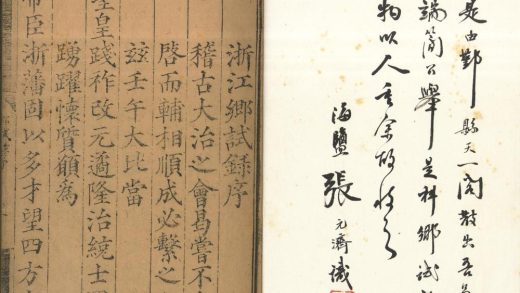 是由鄞縣天一閣散出吾
端簡公舉是科鄉試
物以人重余故收之
海鹽張元濟識
浙江鄉試錄序
稽古大治之會曷嘗不
啓而輔相順成必繫之
茲壬午大比當
皇踐祚改元適隆治統士
踴躍懷質願為
帝臣浙藩固以多才望四方